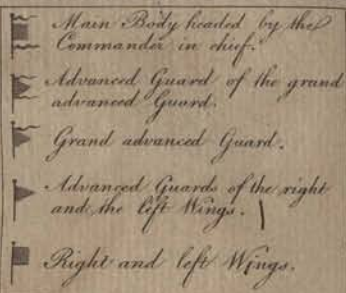 Main Body headed by the
Commander in chief.
Advanced Guard of the grand
advanced Guard.
Grand advanced Guard.
Advanced Guards of the right
and the left Wings.
Right and left Wings.